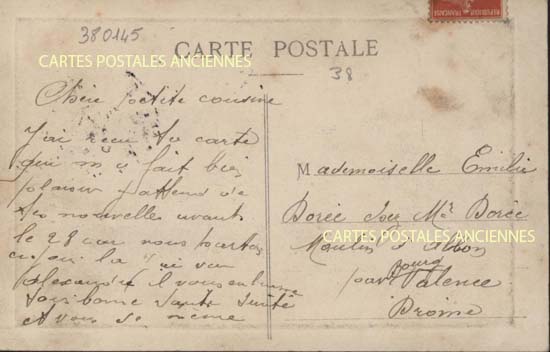 380145
CARTE POSTALE
CARTES POSTALES ANCIENNES
38
REPUBLIQUE FRANÇAISE
Chère petite cousine
J'ai reçu ta carte
qui m'a fait bien
plaisir j'attend de
tes nouvelles avant
le 28 car nous partons
ce jour la j'ai vu
Alexandre il vous embrasse
bonne santé
et vous de même
Mademoiselle Emilie
Borée chez Mr Borée
Moulin d'Albon
CARTES POSTALES ANCIENNES
bourg
par Valence
Drome